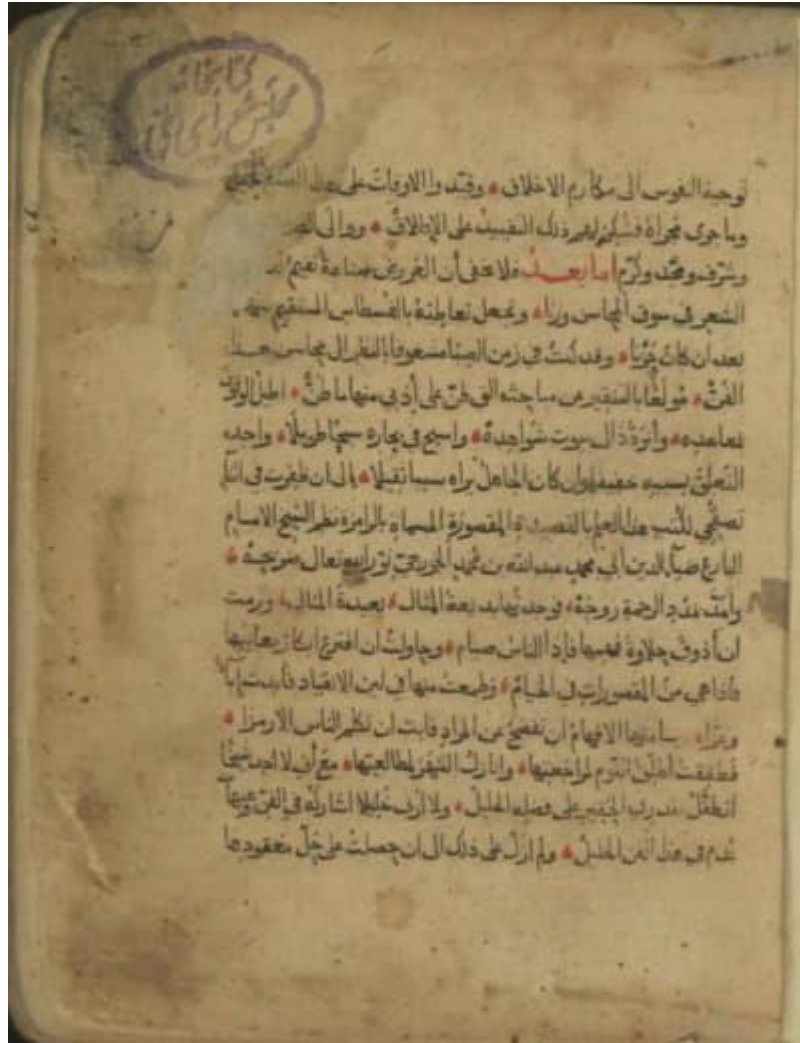 كتابخانه
مجلس شورای ملی
توجيه النفوس الى مكارم الاخلاق وقيدوا الاوقات على هذا
وما جرى مجراه فشكر لغير ذلك التقييد على الإطلاق ووالى
وشرف ومجد وكرم أما بعد فلا يخفى أن العروض صناعة تقيم
الشعر في سوق المحاسن وزنا وتجعل تعاطيه بالقسطاس المستقيم
بعد أن كان وقد كنت في زمن الصبا مشعوفا بالنظر الى محاسن هذا
الفن مولعا بالتنقير عن مباحثه التي طن على أذني منها ما طن اطيل الوقوف
بمعاهده وأسبح في بحاره سبحا طويلا واجد
التعلق بسببه خفيفا وان كان الجاهل يراه سببا ثقيلا الى ان ظفرت في اثنآء
تصفحي لكتب هذا العلم بالقصيدة المقصورة المسماة بالرامزة نظم الشيخ الامام
البارع ضيآء الدين أبي محمد عبد الله بن محمد الخزرجي نور الله تعالى ضريحه
وأمد بمدد الرحمة روحه فوجدتها بديعة المثال بعيدة المنال ورمت
ان أذوق حلاوة فهمها فإذا الناس صيام وحاولت ان افترع ابكار معانيها
فاذا هي من المقصورات في الخيام وطمعت منها في لين الانقياد فأبدت إبآء
وعزا الافهام ان تفصح عن المراد فابت ان تكلم الناس الا رمزا
فطفقت أطلق النوم لمراجعتها وانازل السهر لمطالعتها مع أني لا اجد شيخا
أتطفل بقدري الحقير على فضله الجليل ولا أرى خليلا اشاركه في الفن
في هذا الفن الخليل ولم ازل على ذلك الى ان حصلت على حل معقودها